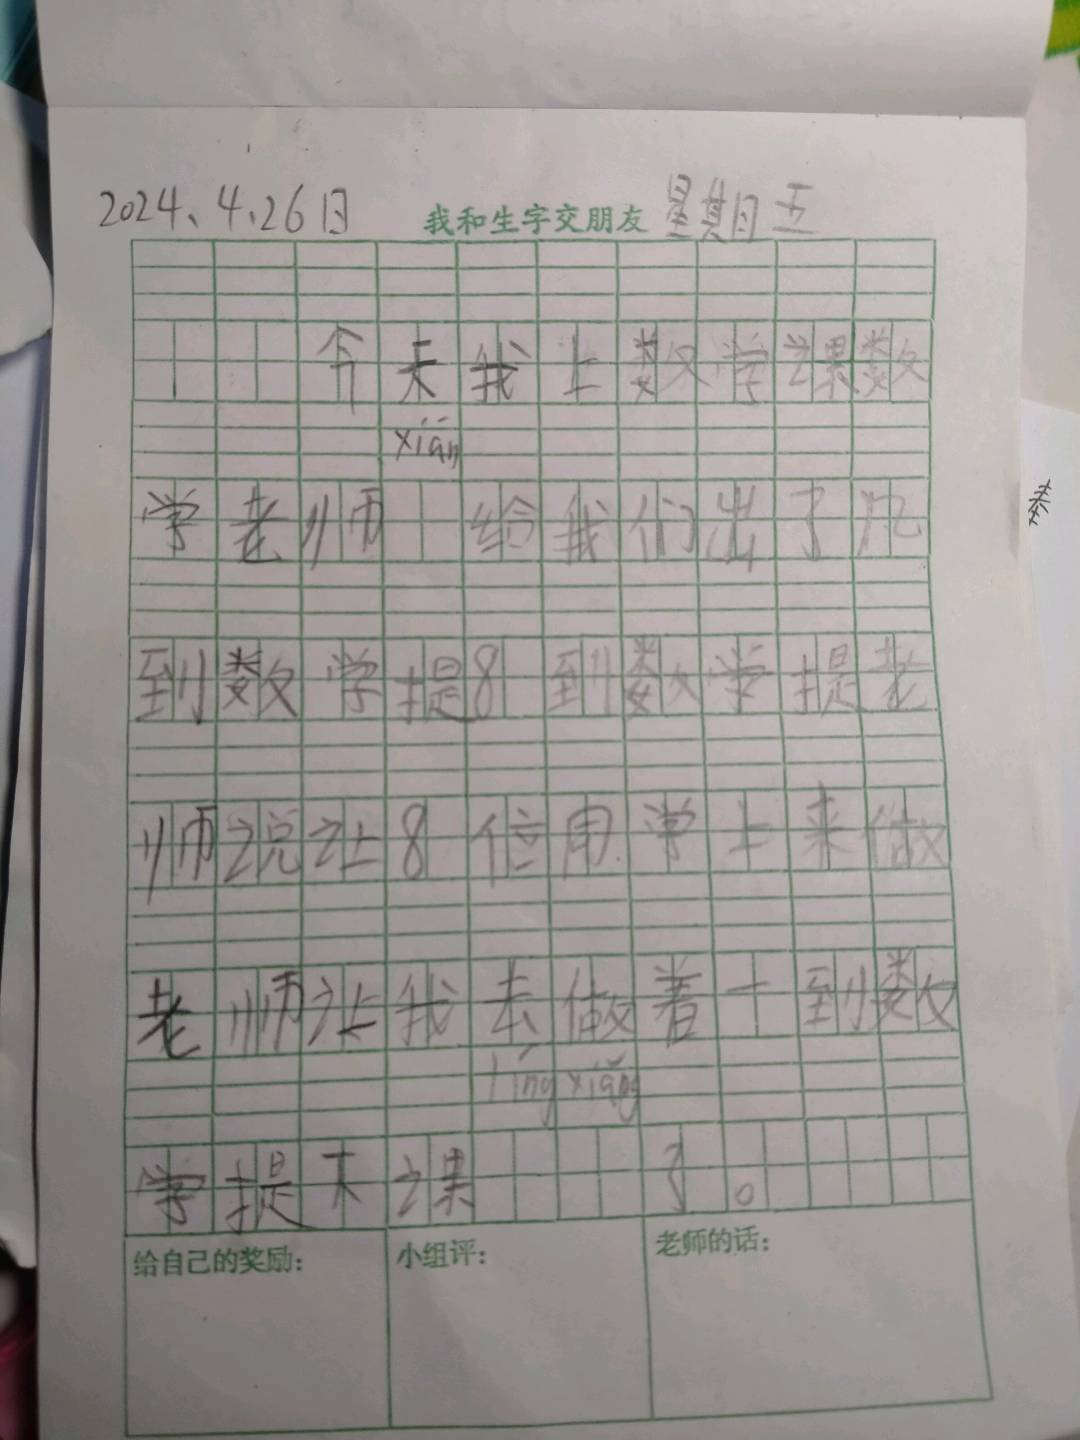 2024、4、26日 我和生字交朋友 星期五
今天我上数学课数
xiān
学老师 给我们出了几
到数学提8到数学提老
师说让8位同学上来做
老师让我去做着一到数
líng xiǎng
学提下课 了。
给自己的奖励: 小组评: 老师的话: